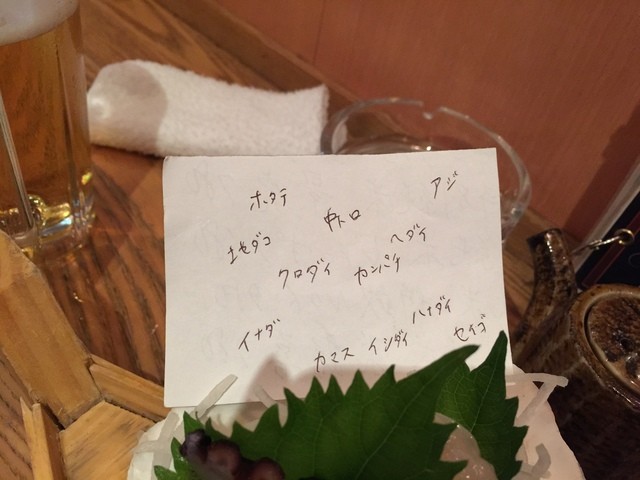 ホタテ
アジ
中トロ
地ダコ
ヘダイ
クロダイ
カンパチ
イナダ
カマス
イシダイ
ハナダイ
セイゴ